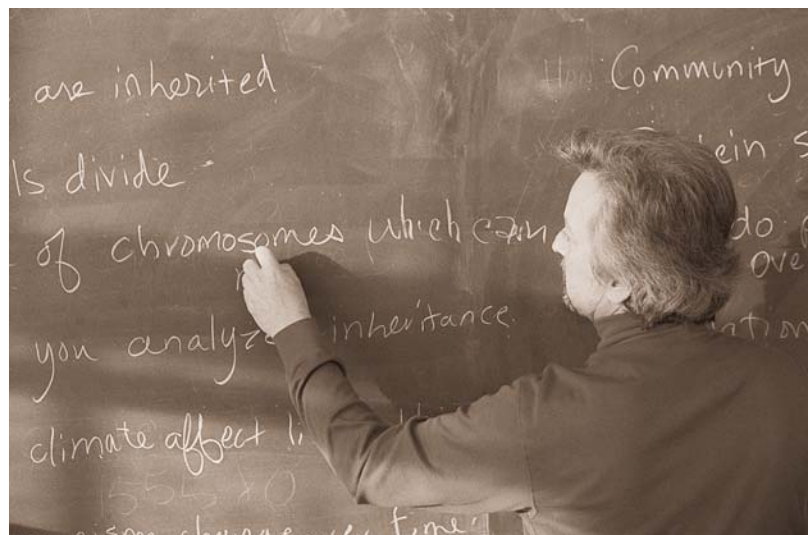 are inherited
ls divide
of chromosomes which can
you analyze inheritance.
climate affect
change time.
How Community
ein s
do
ove